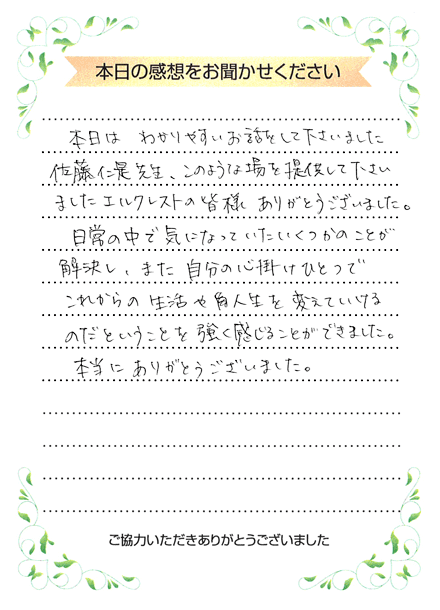 本日の感想をお聞かせください
本日は わかりやすいお話をして下さいました
佐藤仁是先生、このような場を提供して下さい
ましたエルクレストの皆様 ありがとうございました。
日常の中で気になっていたいくつかのことが
解決し、また 自分の心掛けひとつで
これからの 生活や 人生を 変えていける
のだということを 強く感じることができました。
本当に ありがとうございました。
ご協力いただきありがとうございました